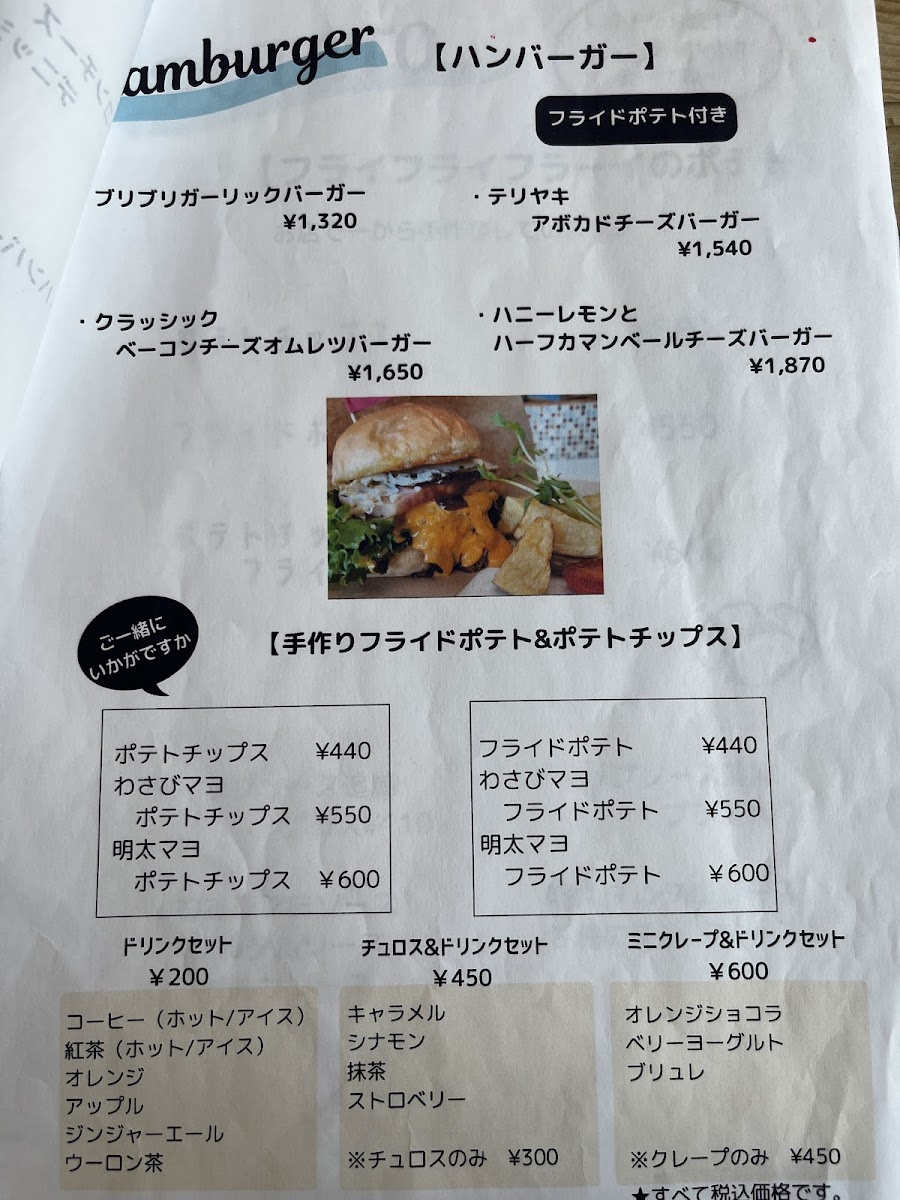 amburger
【ハンバーガー】
フライドポテト付き
ブリブリガーリックバーガー
¥1,320
・テリヤキ
アボカドチーズバーガー
¥1,540
・クラッシック
ベーコンチーズオムレツバーガー
¥1,650
・ハニーレモンと
ハーフカマンベールチーズバーガー
¥1,870
ご一緒に
いかがですか
【手作りフライドポテト&ポテトチップス】
ポテトチップス ¥440
わさびマヨ
ポテトチップス ¥550
明太マヨ
ポテトチップス ¥600
フライドポテト ¥440
わさびマヨ
フライドポテト ¥550
明太マヨ
フライドポテト ¥600
ドリンクセット
¥200
コーヒー（ホット/アイス）
紅茶（ホット/アイス）
オレンジ
アップル
ジンジャーエール
ウーロン茶
チュロス&ドリンクセット
¥450
キャラメル
シナモン
抹茶
ストロベリー
※チュロスのみ ¥300
ミニクレープ&ドリンクセット
¥600
オレンジショコラ
ベリーヨーグルト
ブリュレ
※クレープのみ ¥450
★すべて税込価格です。